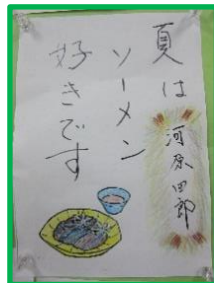 夏は
ソーメン
好きです
河原田郎